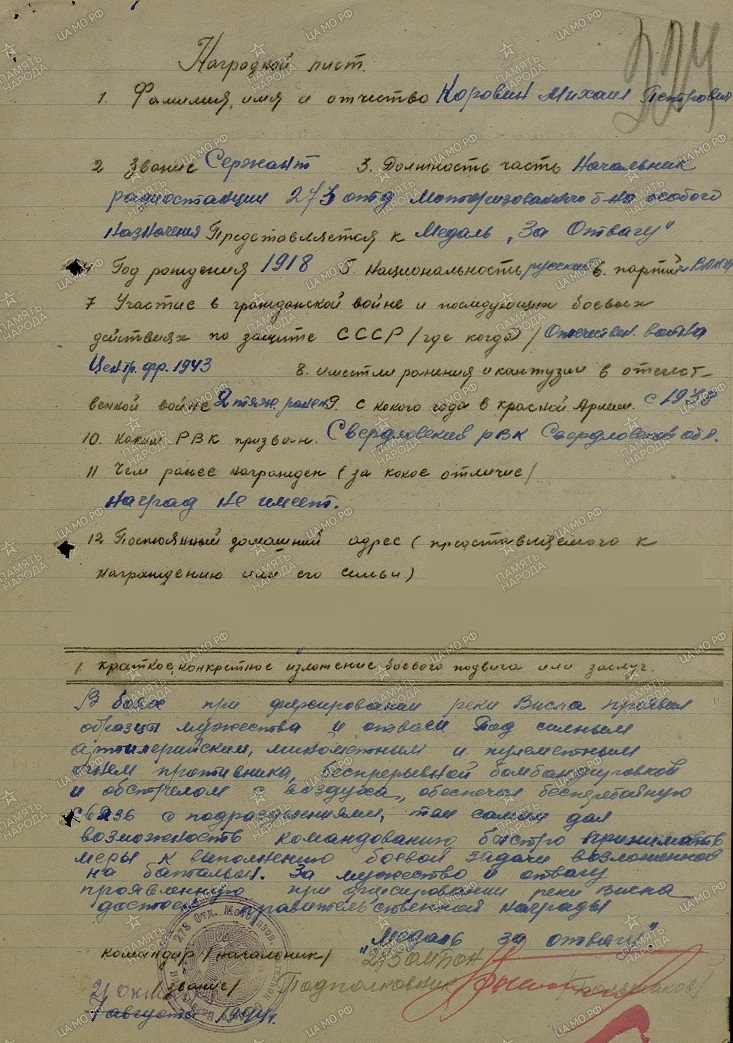 Наградной лист.
224
1. Фамилия, имя и отчество Коровин Михаил Петрович
2 Звание Сержант 3. Должность часть Начальник
радиостанции 273 отд моторизованного б-на особого
назначения Представляется к Медаль „За Отвагу"
4 Год рождения 1918 5. Национальность русский 6. партий
7 Участие в гражданской войне и последующих боевых
действиях по защите СССР /где когда/ Отечествен. война
Центр. фр. 1943 8. имеет ли ранения и контузии в отечест-
венной войне 2 тяж. ранен 9. с какого года в красной Армии. с
10. каким РВК призван. Свердловский РВК Свердловской обл.
11 Чем ранее награжден (за какое отличие/
Наград не имеет.
12 Постоянный домашний адрес (представляемого к
награждению или его семьи)
1 краткое, конкретное изложение боевого подвига или заслуг.
В боях при форсировании реки Висла проявил
образцы мужества и отваги Под сильным
артилерийским, минометным и пулеметным
огнем противника, беспрерывной бомбандировкой
и обстрелом с воздуха, обеспечил бесперебойную
связь с подразделениями, тем самым дал
возможность командованию быстро принимать
меры к выполнению боевой задачи возложенной
на батальон. За мужество и отвагу
проявленную при форсировании реки Висла
достоен правительственной награды
"Медаль за отвагу".
командир /начальник/ 273 ОМБОН
звание/ Подполковник /Большаков/
21
7 августа 1944г.